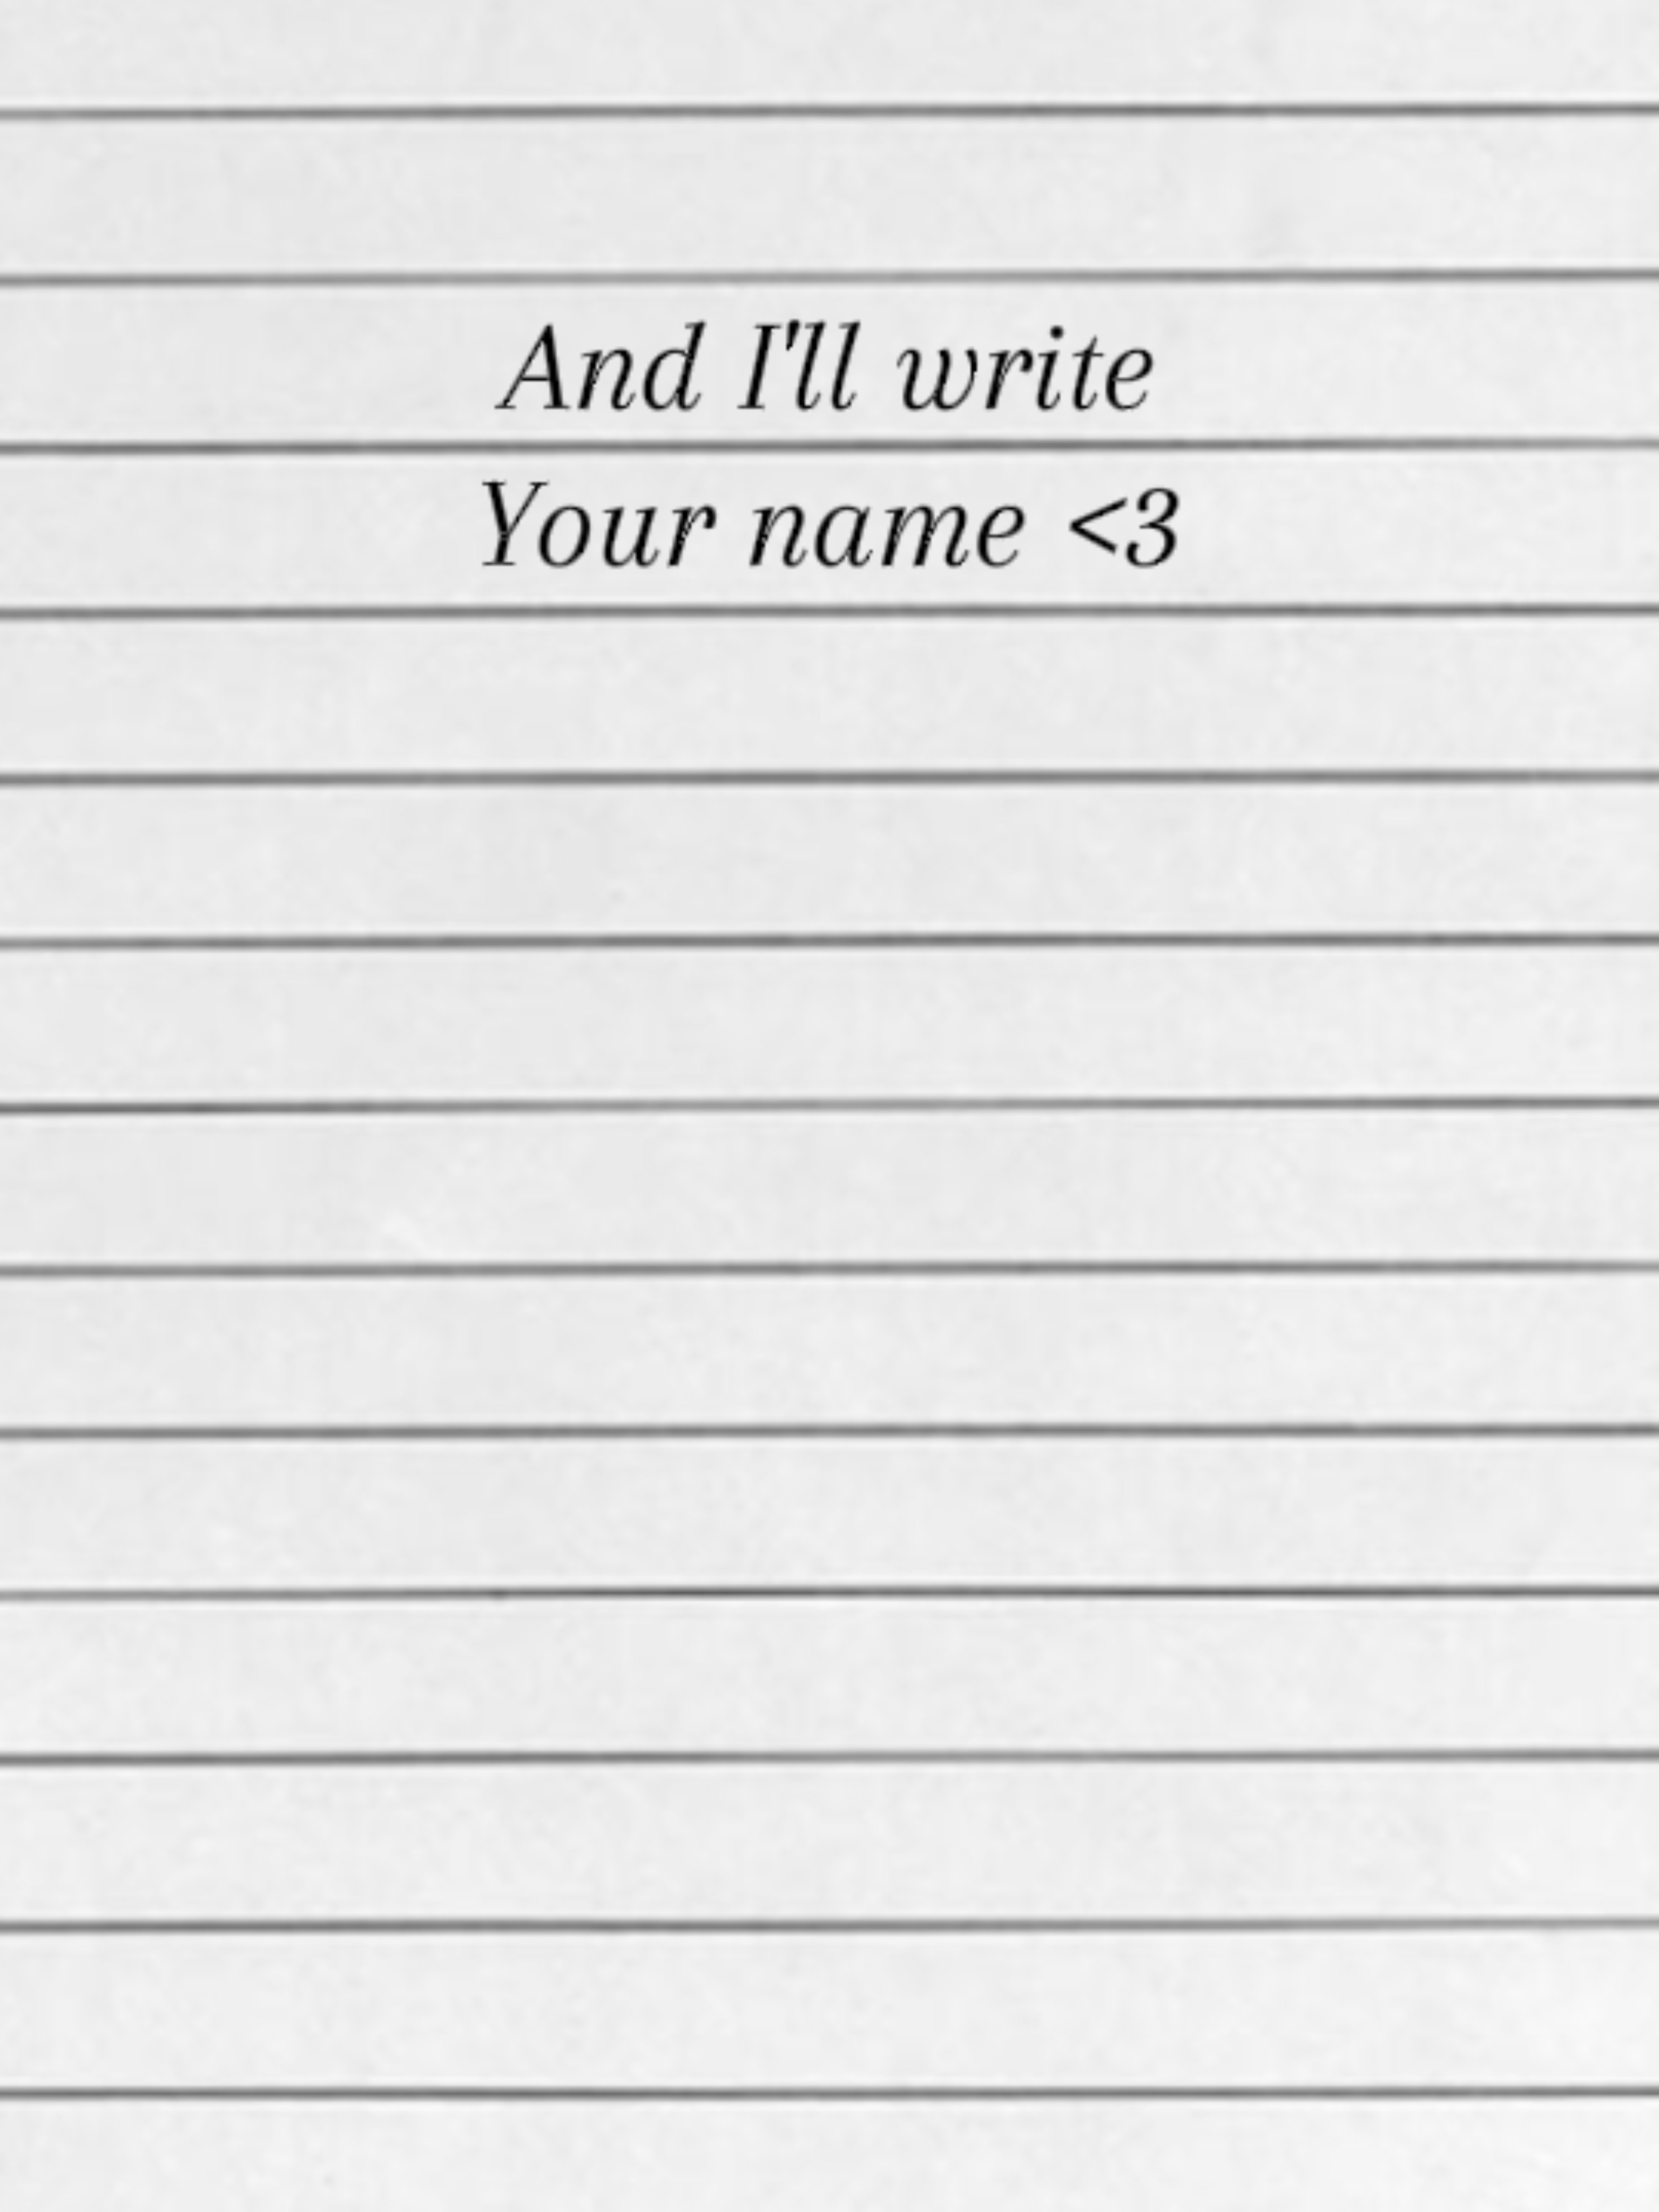 And I'll write
Your name <3